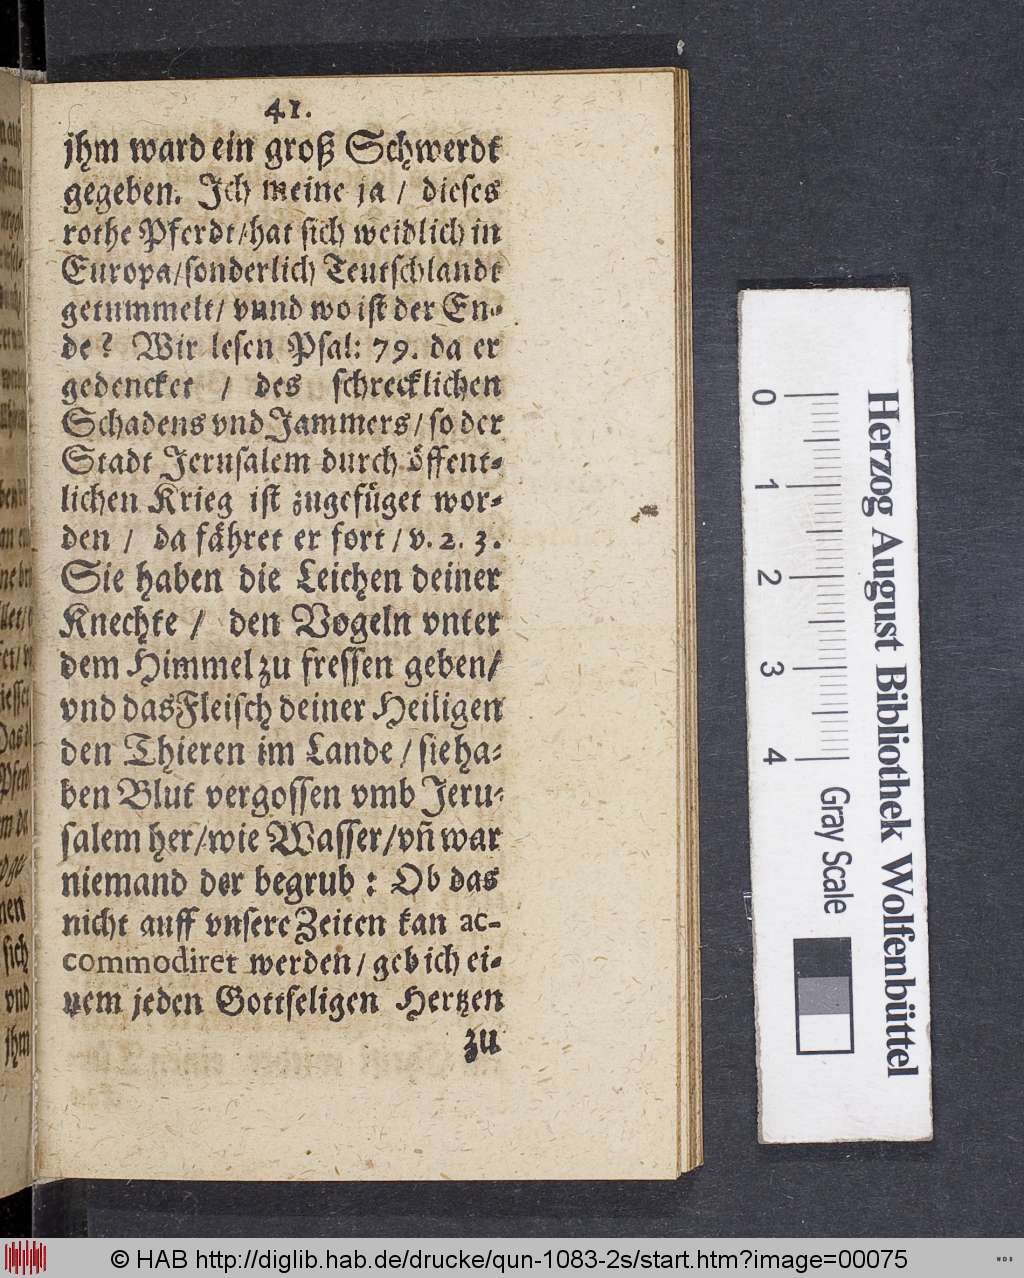 41.
jhm ward ein groß Schwerdt
gegeben. Jch meine ja / dieses
rothe Pferdt / hat sich weidlich in
Europa / sonderlich Teutschlandt
getummelt / vnnd wo ist der En-
de? Wir lesen Psal: 79. da er
gedencket / des schrecklichen
Schadens vnd Jammers / so der
Stadt Jerusalem durch öffent-
lichen Krieg ist zugefüget wor-
den / da fähret er fort / v. 2. 3.
Sie haben die Leichen deiner
Knechte / den Vogeln vnter
dem Himmel zu fressen geben /
vnd das Fleisch deiner Heiligen
den Thieren im Lande / sie ha-
ben Blut vergossen vmb Jeru-
salem her / wie Wasser / vñ war
niemand der begrub: Ob das
nicht auff vnsere Zeiten kan ac-
commodiret werden / geb ich ei-
nem jeden Gottseligen Hertzen
zu
Herzog August Bibliothek Wolfenbüttel
0 1 2 3 4
Gray Scale
© HAB http://diglib.hab.de/drucke/qun-1083-2s/start.htm?image=00075